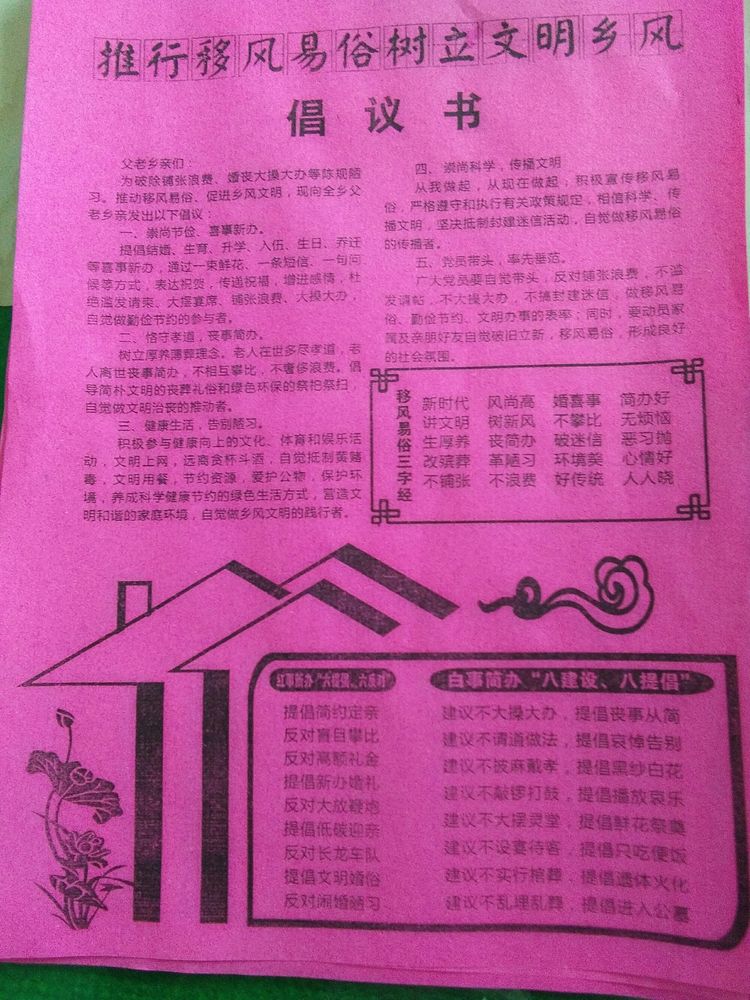 推行移风易俗树立文明乡风
倡议书
父老乡亲们：
为破除铺张浪费、婚丧大操大办等陈规陋
习。推动移风易俗、促进乡风文明，现向全乡父
老乡亲发出以下倡议：
一、崇尚节俭、喜事新办。
提倡结婚、生育、升学、入伍、生日、乔迁
等喜事新办，通过一束鲜花、一条短信、一句问
候等方式，表达祝贺，传递祝福，增进感情，杜
绝滥发请柬、大摆宴席、铺张浪费、大操大办，
自觉做勤俭节约的参与者。
二、恪守孝道，丧事简办。
树立厚养薄葬理念。老人在世多尽孝道，老
人离世丧事简办，不相互攀比，不奢侈浪费。倡
导简朴文明的丧葬礼俗和绿色环保的祭祀祭扫，
自觉做文明治丧的推动者。
三、健康生活，告别陋习。
积极参与健康向上的文化、体育和娱乐活
动，文明上网，远离贪杯斗酒，自觉抵制黄赌
毒，文明用餐，节约资源，爱护公物，保护环
境，养成科学健康节约的绿色生活方式，营造文
明和谐的家庭环境，自觉做乡风文明的践行者。
四、崇尚科学，传播文明
从我做起，从现在做起；积极宣传移风易
俗，严格遵守和执行有关政策规定，相信科学、传
播文明，坚决抵制封建迷信活动，自觉做移风易俗
的传播者。
五、党员带头，率先垂范。
广大党员要自觉带头，反对铺张浪费，不滥
发请帖，不大操大办，不搞封建迷信，做移风易
俗、勤俭节约、文明办事的表率；同时，要动员家
属及亲朋好友自觉破旧立新，移风易俗，形成良好
的社会氛围。
移风易俗三字经
新时代 风尚高 婚喜事 简办好
讲文明 树新风 不攀比 无烦恼
生厚养 丧简办 破迷信 恶习抛
改殡葬 革陋习 环境美 心情好
不铺张 不浪费 好传统 人人晓
红事新办“六提倡、六反对”
提倡简约定亲
反对盲目攀比
反对高额礼金
提倡新办婚礼
反对大放鞭炮
提倡低碳迎亲
反对长龙车队
提倡文明婚俗
反对闹婚陋习
白事简办“八建设、八提倡”
建议不大操大办，提倡丧事从简
建议不请道做法，提倡哀悼告别
建议不披麻戴孝，提倡黑纱白花
建议不敲锣打鼓，提倡播放哀乐
建议不大摆灵堂，提倡鲜花祭奠
建议不设宴待客，提倡只吃便饭
建议不实行棺葬，提倡遗体火化
建议不乱埋乱葬，提倡进入公墓